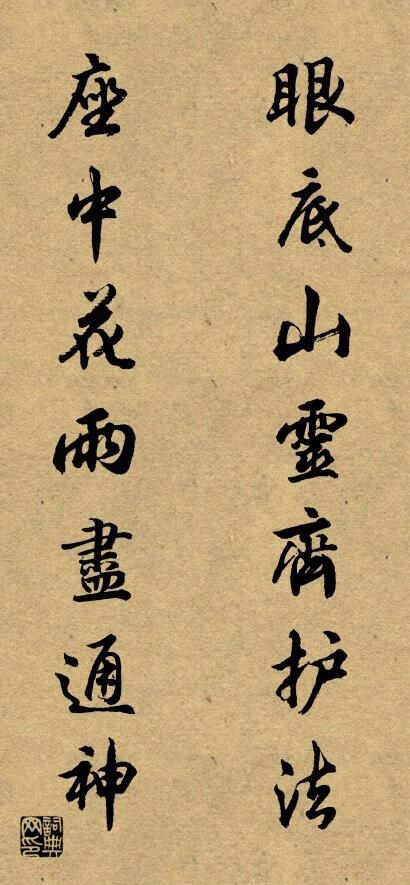 眼底山靈齊护法
座中花雨盡通神
詞典网印